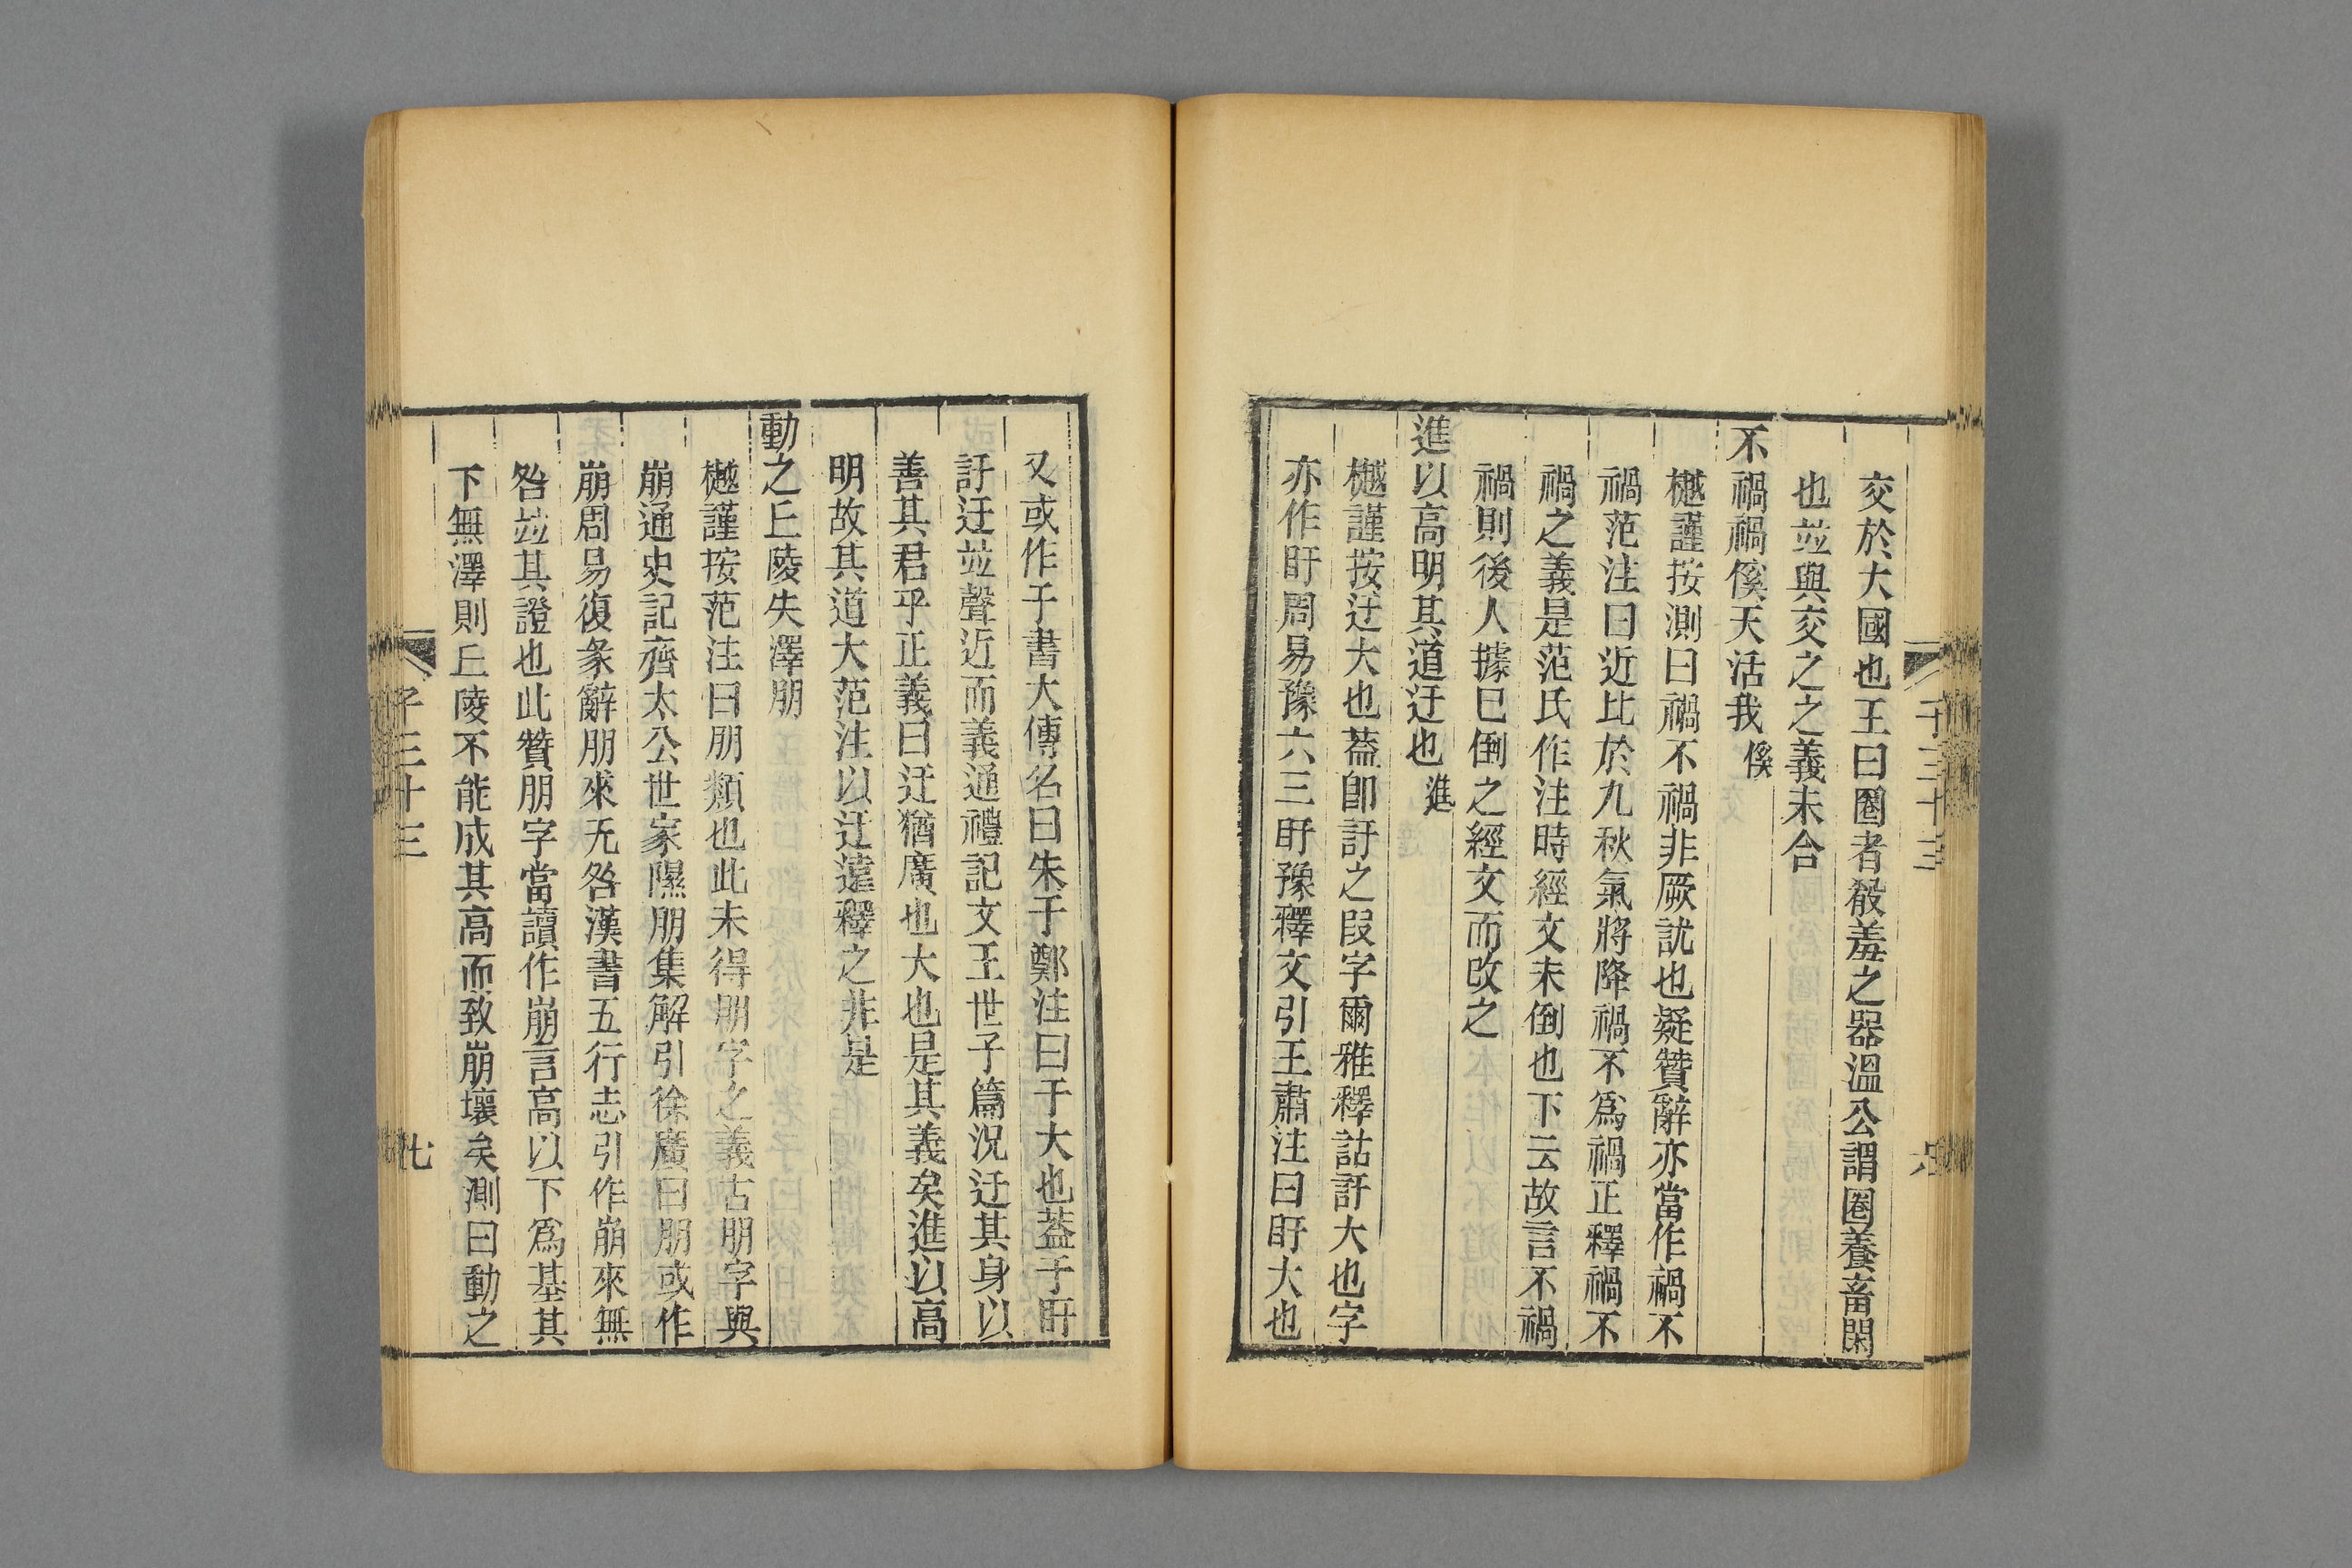 交於大國也王曰圈者殽羞之器溫公謂圈養畜閑
也並與交之之義未合
不禍禍傒天活我傒
樾謹按測曰禍不禍非厥訧也疑贊辭亦當作禍不
禍范注曰近比於九秋氣將降禍不爲禍正釋禍不
禍之義是范氏作注時經文未倒也下云故言不禍
禍則後人據已倒之經文而改之
進以高明其道迂也進
樾謹按迂大也葢卽訏之叚字爾雅釋詁訏大也字
亦作盱周易豫六三盱豫釋文引王肅注曰盱大也
又或作于書大傳名曰朱于鄭注曰于大也葢于盱
訏迂並聲近而義通禮記文王世子篇況迂其身以
善其君乎正義曰迂猶廣也大也是其義矣進以高
明故其道大范注以迂遠釋之非是
動之丘陵失澤朋
樾謹按范注曰朋類也此未得朋字之義古朋字與
崩通史記齊太公世家隰朋集解引徐廣曰朋或作
崩周易復彖辭朋來无咎漢書五行志引作崩來無
咎並其證也此贊朋字當讀作崩言高以下爲基其
下無澤則丘陵不能成其高而致崩壞矣測曰動之
平三十三
七